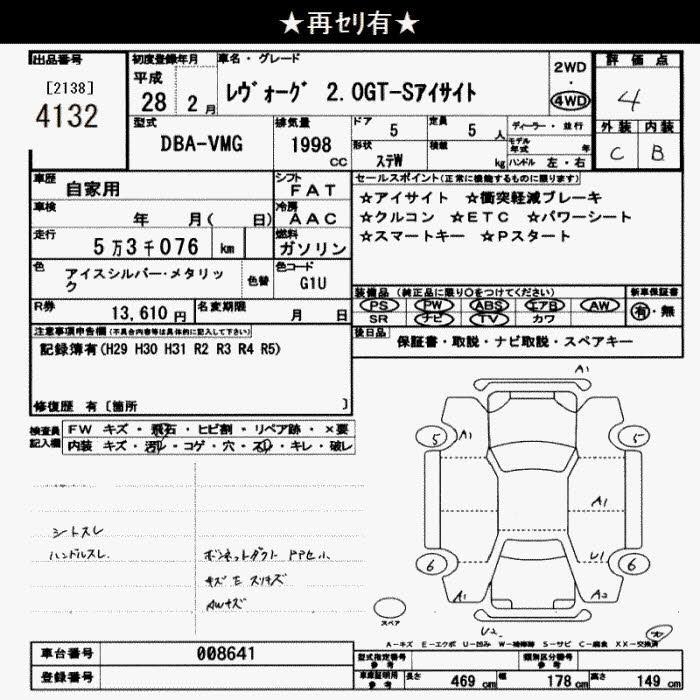 ★再セリ有★
出品番号
[2138]
4132
初度登録年月
平成
28 2月
車名・グレード
レヴォーグ 2.0GT-Sアイサイト
2WD
・
4WD
評価点
4
外装 内装
C B
型式
DBA-VMG
排気量
1998
cc
ドア
5
定員
5 人
形状
ステW
積載
kg
ディーラー・並行
モデル年式 年
ハンドル 左・右
車歴
自家用
シフト
FAT
車検
年 月( 日)
冷房
AAC
走行
5万3千076 km
燃料
ガソリン
色
アイスシルバー・メタリック
色替
色コード
G1U
R券
13,610円
名変期限
月 日
セールスポイント(正常に機能するものに限ります)
☆アイサイト ☆衝突軽減ブレーキ
☆クルコン ☆ETC ☆パワーシート
☆スマートキー ☆Pスタート
装備品 (純正品に限り○をつけてください)
PS PW ABS エアB AW
SR ナビ TV カワ
新車保証書
有・無
後日品
保証書・取説・ナビ取説・スペアキー
注意事項申告欄(不具合内容等は具体的に記入して下さい)
記録簿有(H29 H30 H31 R2 R3 R4 R5)
修復歴 有〔箇所 〕
検査員
記入欄
FW キズ・飛石・ヒビ割・リペア跡・×要
内装 キズ・汚レ・コゲ・穴・スレ・キレ・破レ
シートスレ
ハンドルスレ
ボンネットダクト PP セ小
キズ E スリキズ
AWキズ
A1
5
A1
5
A1
6
U1
6
A1
A2
U2
スペア
A-キズ E-エクボ U-凹み W-補修跡 S-サビ C-腐食 XX-交換済
車台番号
008641
登録番号
型式指定番号
参考
類別区分番号
参考
車庫証明用
参考
長さ
469 cm
幅
178 cm
高さ
149 cm